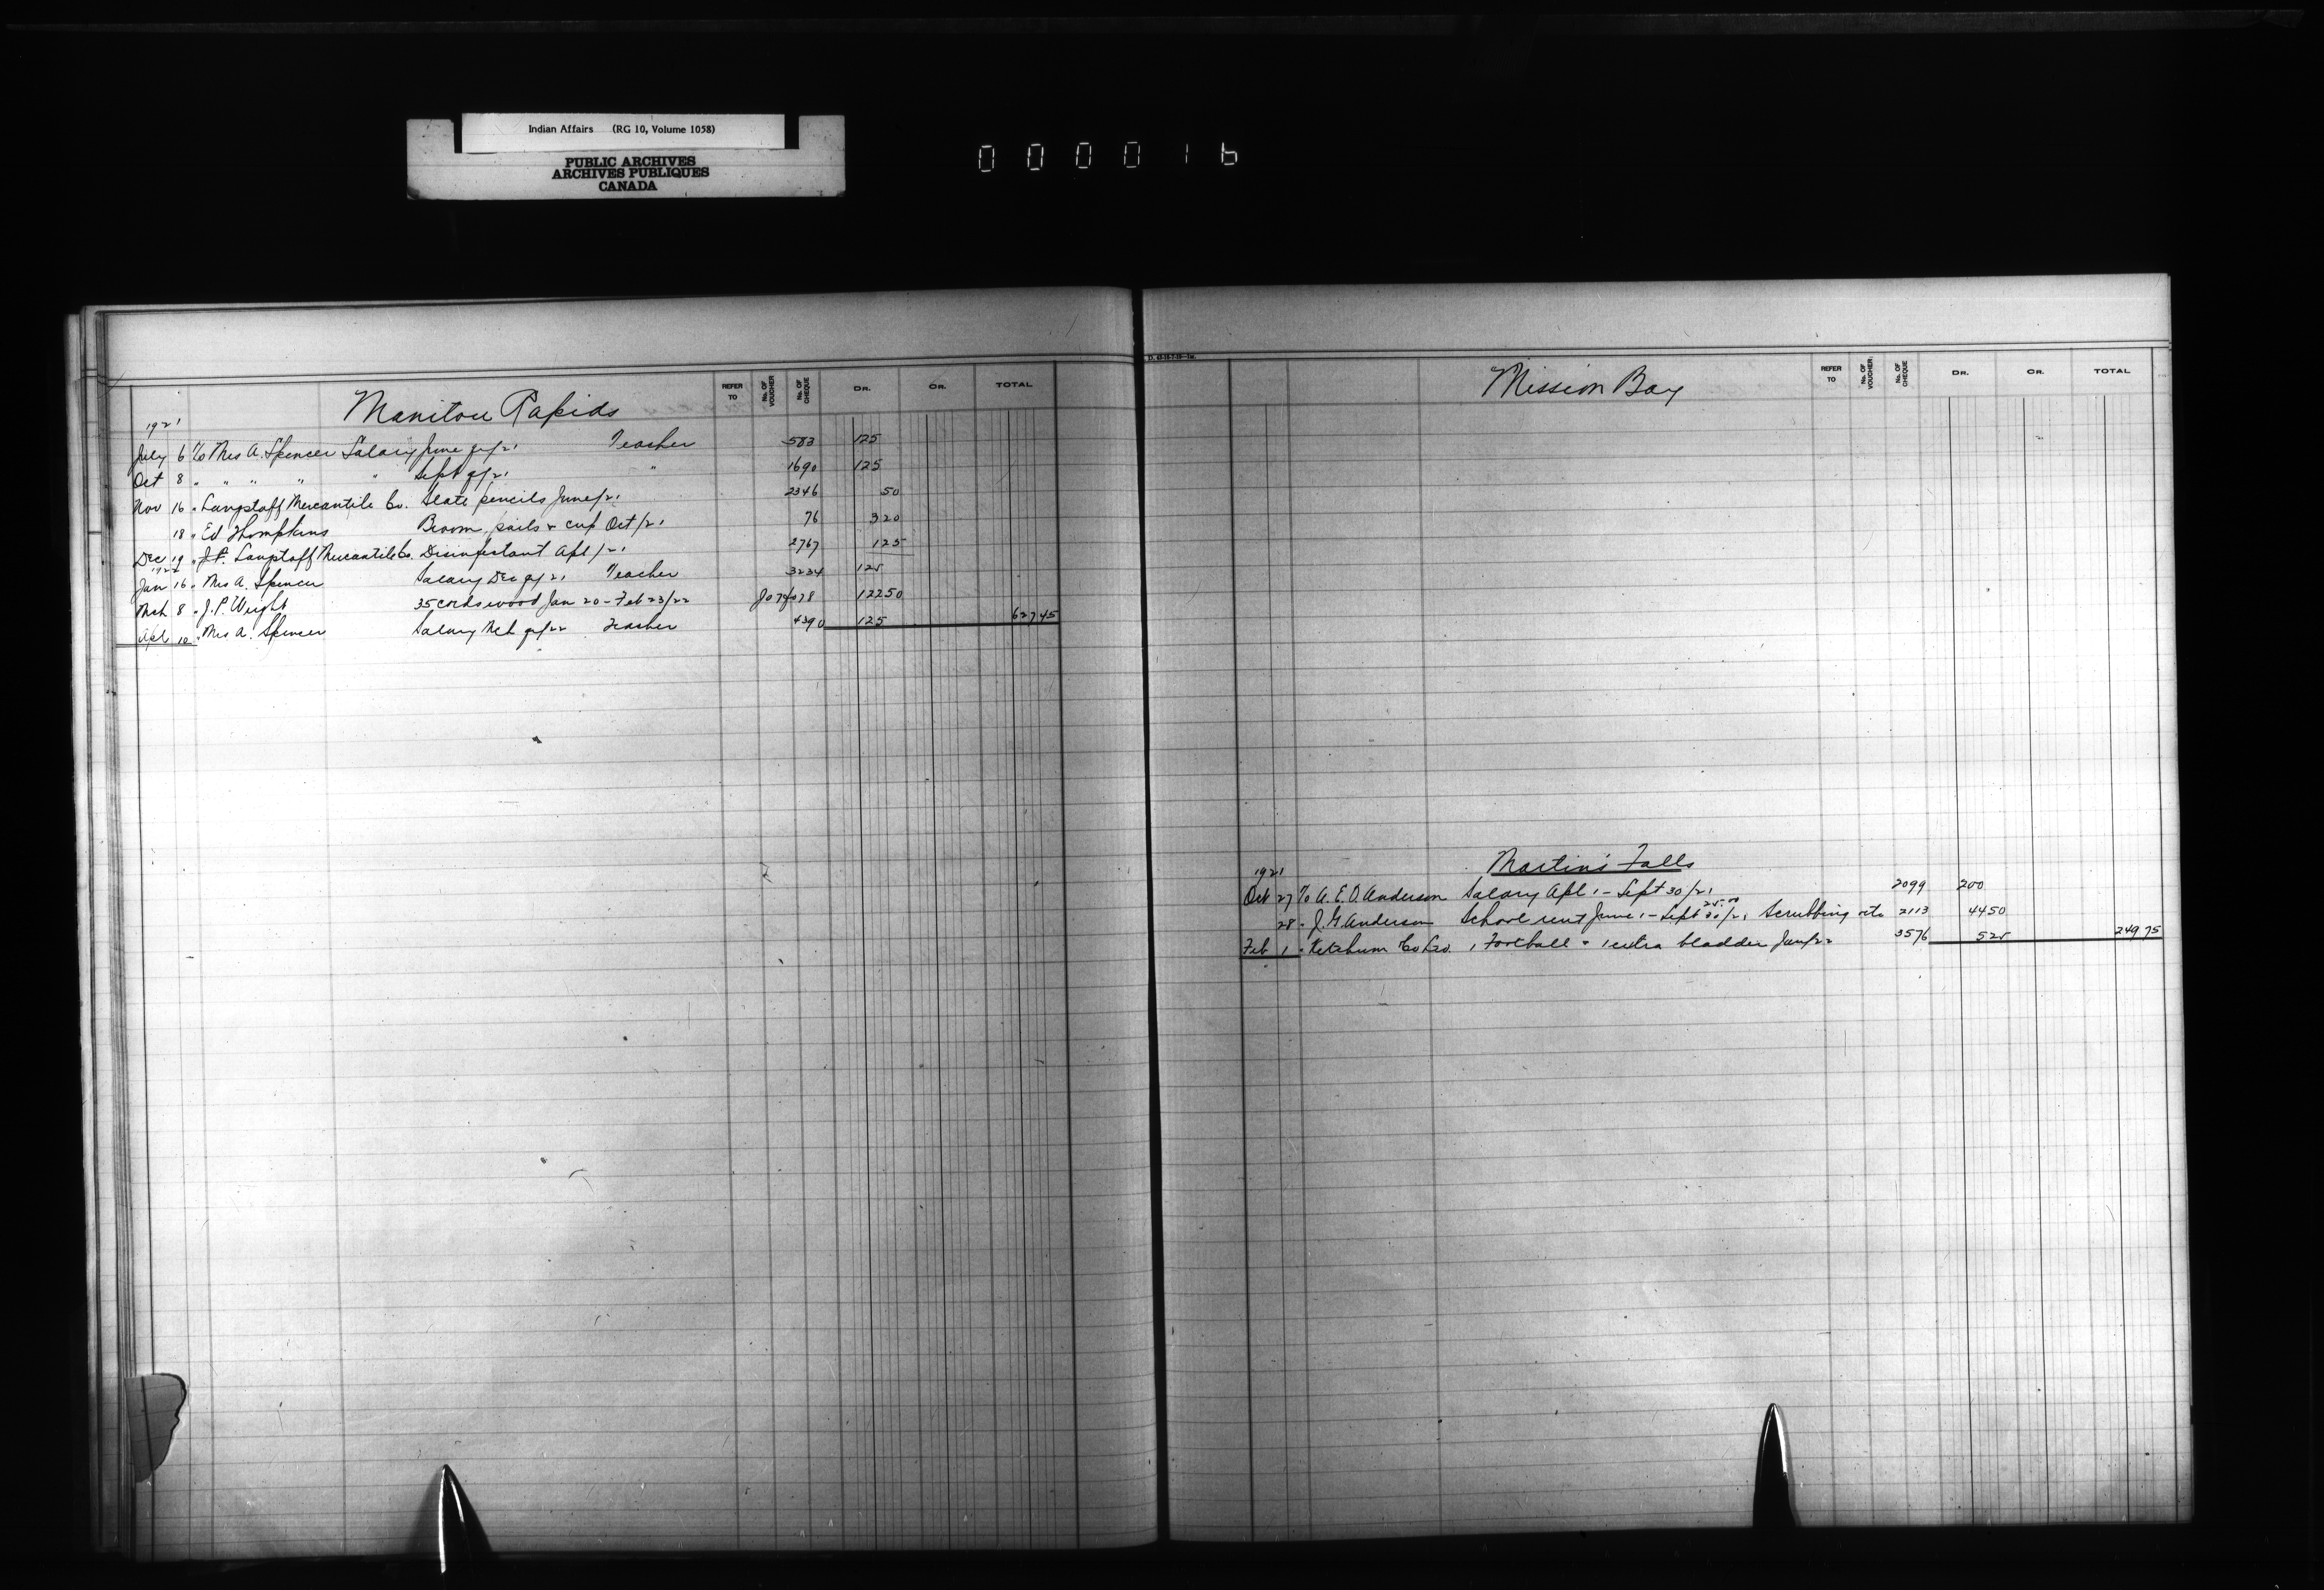 Indian Affairs (RG 10, Volume 1058)
PUBLIC ARCHIVES
ARCHIVES PUBLIQUES
CANADA
000016
Manitou Rapids
REFER TO No. OF VOUCHER No. OF CHEQUE DR. CR. TOTAL
1921
July 6 To Mrs A. Spencer Salary June qr/21 Teacher 583 125
Oct 8 " " " " " Sept qr/21 " 1690 125
Nov 16 " Langstaff Mercantile Co. Slate pencils June/21 2346 50
18 " Ed Thompkins Broom, pails & cup Oct/21 76 320
Dec 19 " J.P. Langstaff Mercantile Co. Disinfectant Apl/21 2767 125
1922
Jan 16 " Mrs A. Spencer Salary Dec qr/21 Teacher 3234 125
Mch 8 " J.P. Wright 35 cords wood Jan 20 - Feb 23/22 4078 12250
Apl 10 " Mrs A. Spencer Salary Mch qr/22 Teacher 4390 125 62745
Mission Bay
REFER TO No. OF VOUCHER No. OF CHEQUE DR. CR. TOTAL
Martin's Falls
1921
Oct 27 To A. E. O. Anderson Salary Apl 1 - Sept 30/21 2099 200
28 " J. G. Anderson School rent June 1 - Sept 30/21 Scrubbing etc 2113 4450
Feb 1 " Ketchum Co Ltd. 1 Football & 1 extra bladder Jan/22 3576 525 24975